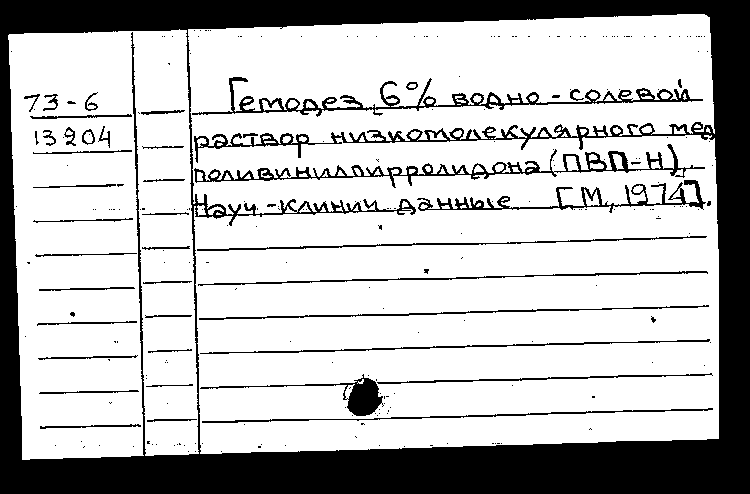 73-6
13204
Гемодез 6% водно-солевой
раствор низкомолекулярного мед
поливинилпирролидона (ПВП-Н).
Науч.-клинич данные [М., 1974].